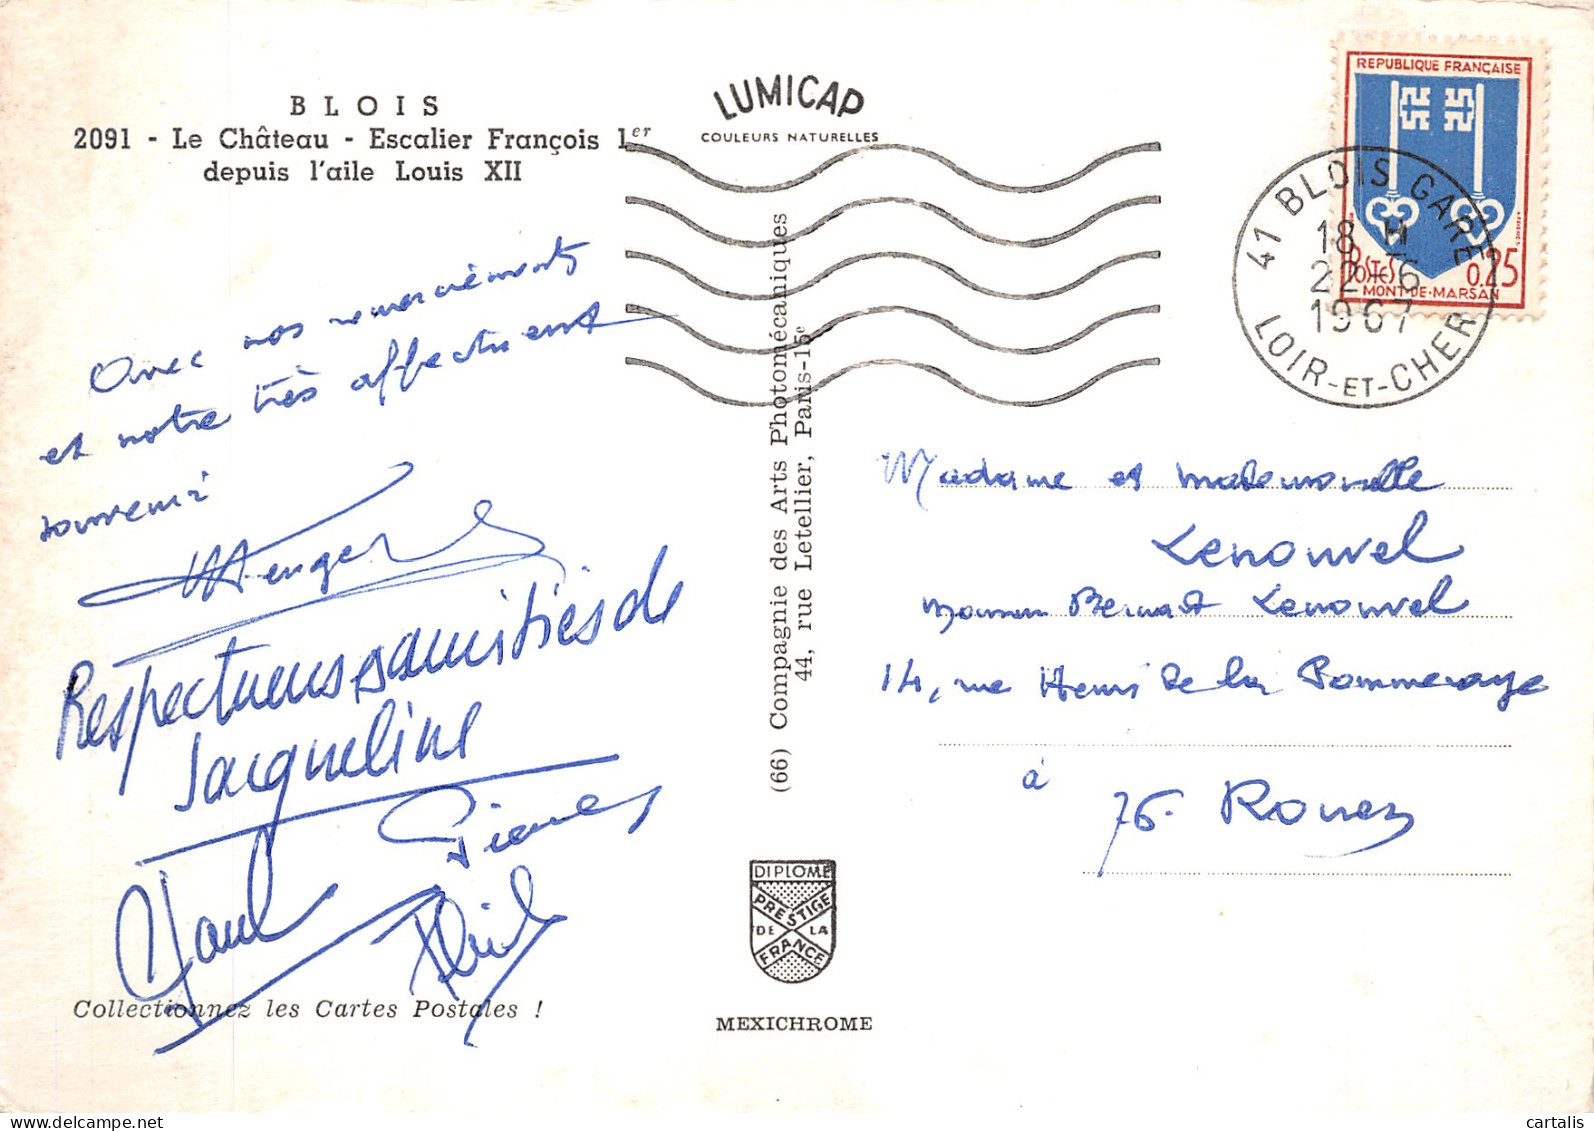 BLOIS
2091 - Le Château - Escalier François 1er
depuis l'aile Louis XII
LUMICAP
COULEURS NATURELLES
REPUBLIQUE FRANÇAISE
POSTES 0.25
MONT-DE-MARSAN
41 BLOIS GARE
18 H
22-6
1967
LOIR-ET-CHER
Avec nos remerciements
et notre très affectueux
souvenir
Respectueuses amitiés de
Jacqueline
Pierre
Paul
(66) Compagnie des Arts Photomécaniques
44, rue Letellier, Paris-15e
Madame et Mademoiselle
Lenouvel
Monsieur Bernard Lenouvel
14, rue Henri de la Pommeraye
à
76. Rouen
DIPLOME
PRESTIGE
DE LA
FRANCE
Collectionnez les Cartes Postales !
MEXICHROME
www.delcampe.net
cartalis